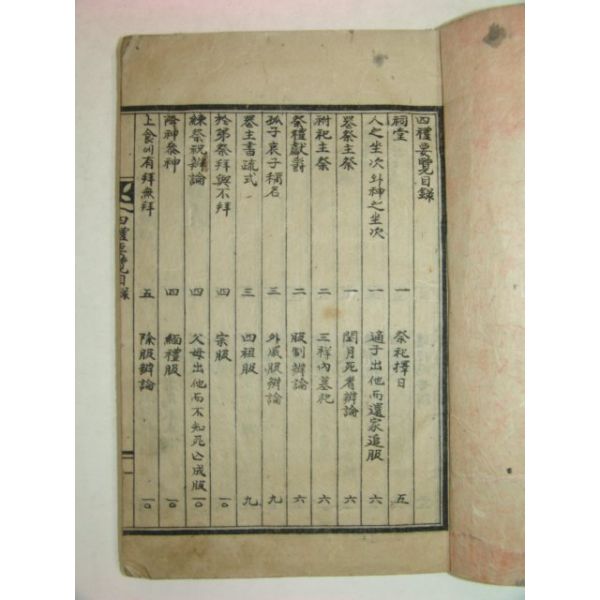 四禮要覽目錄
祠堂 一 祭祀擇日 五
人之坐次와神之坐次 一 適子出他而還家追服 六
喪祭主祭 一 閏月死者辯論 六
祔祀主祭 二 三祥內墓祀 六
祭禮獻爵 二 服制辯論 六
孤子哀子稱名 三 外戚服辯論 九
喪主書疏式 三 四祖服 九
於弟祭拜與不拜 四 宗服 一〇
練祭祝辯論 四 父母出他而不知死亡成服 一〇
降神參神 四 緬禮服 一〇
上食에有拜無拜 五 除服辯論 一〇
四禮要覽目錄 一